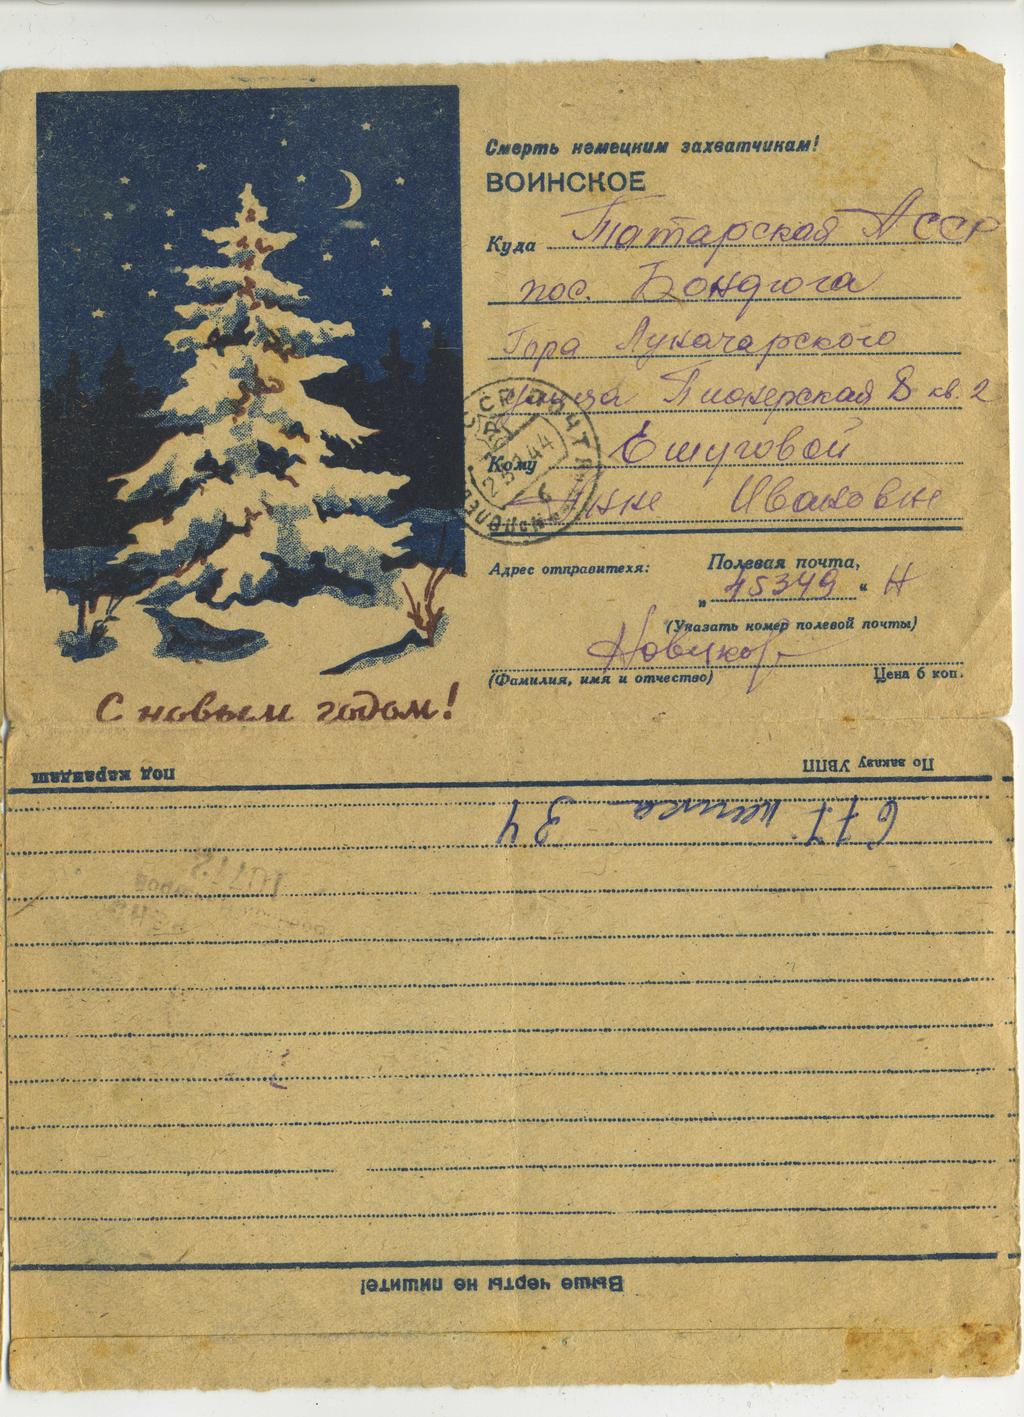 Смерть немецким захватчикам!
ВОИНСКОЕ
Куда Татарская АССР
пос. Бондюга
Гора Луначарского
улица Пионерская 8 кв. 2
Кому Ешуговой
Инне Ивановне
Адрес отправителя:
Полевая почта,
„ 45349 “ Н
(Указать номер полевой почты)
(Фамилия, имя и отчество) Цена 6 коп.
С новым годом!
СССР ПОЧТА
По заказу УВПП
под карандаш
677 34
10713
Выше черты не пишите!